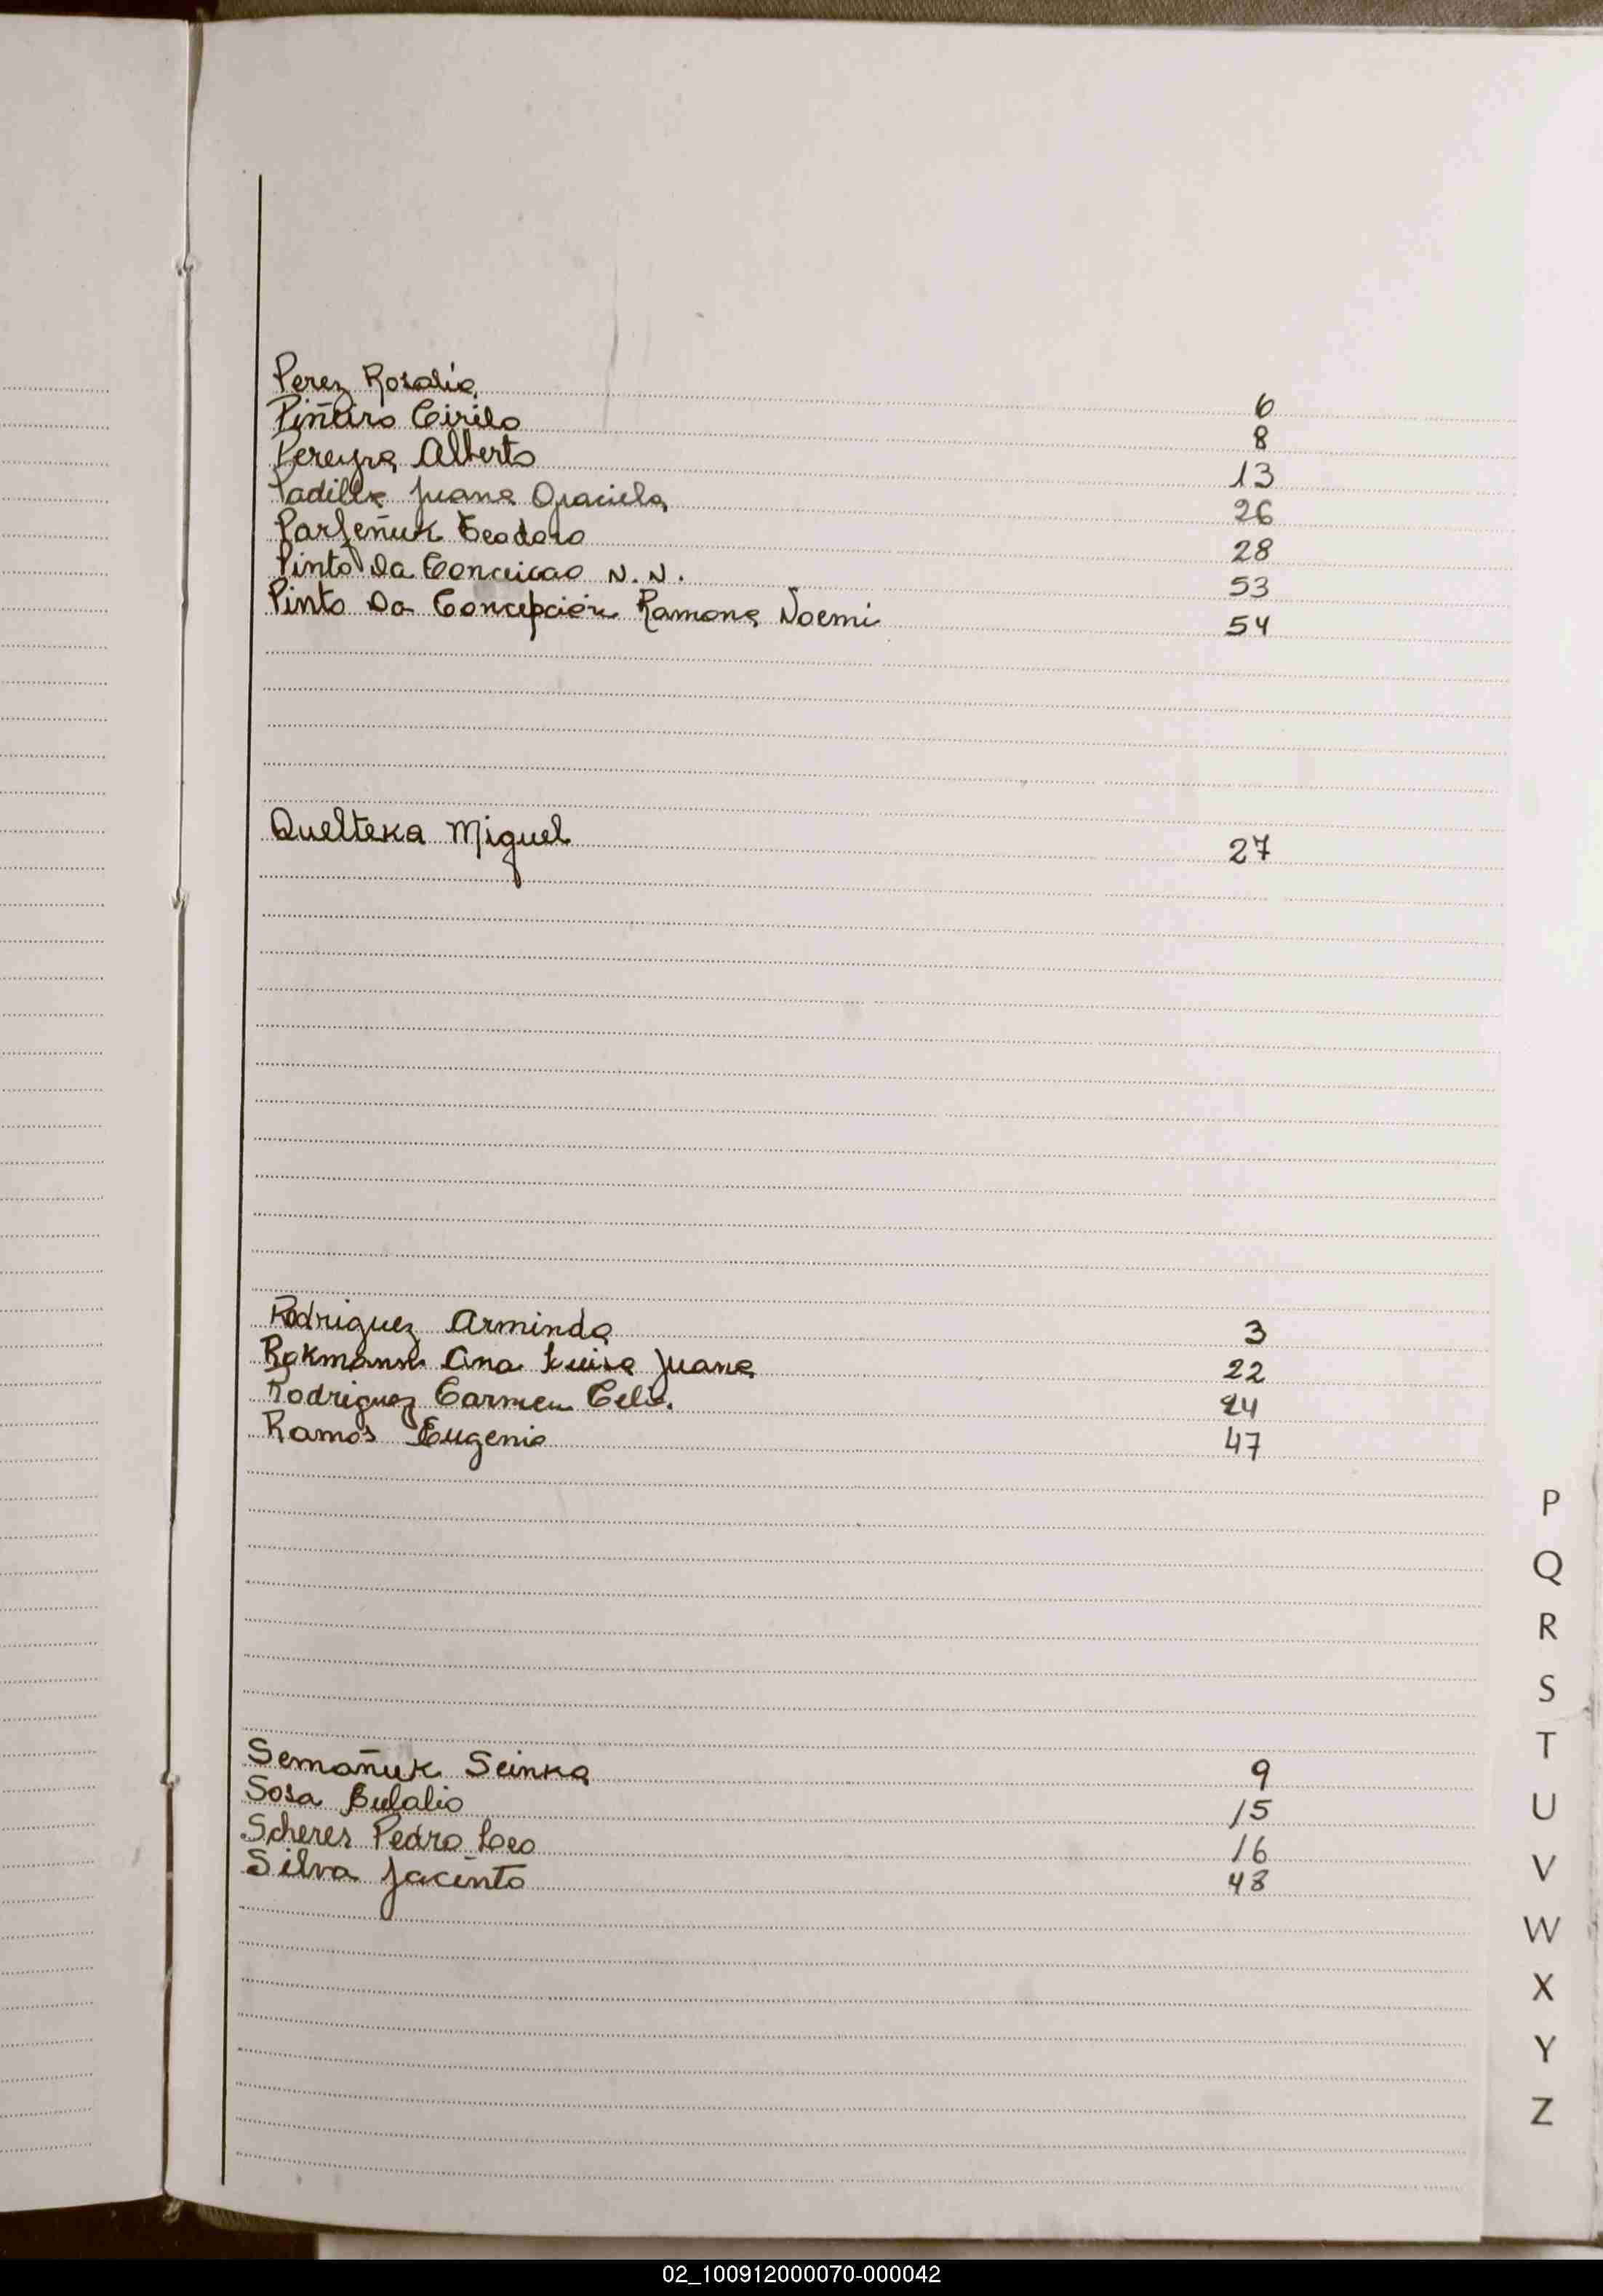 Perez Rosalia 6
Piñeiro Cirilo 8
Pereyra Alberto 13
Padilla Juana Graciela 26
Parfeñuk Teodoro 28
Pinto Da Conceicao N.N. 53
Pinto Da Concepción Ramona Noemi 54
Quelteka Miguel 27
Rodriguez Arminda 3
Rakmann Ana Luisa Juana 22
Rodriguez Carmen Celia 24
Ramos Eugenio 47
P
Q
R
S
Semañuk Seinka 9
T
Sosa Eulalio 15
U
Scheres Pedro Leo 16
Silva Jacinto 48
V
W
X
Y
Z
02_100912000070-000042